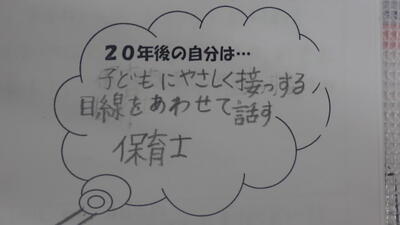 20年後の自分は…
子どもにやさしく接っする
目線をあわせて話す
保育士